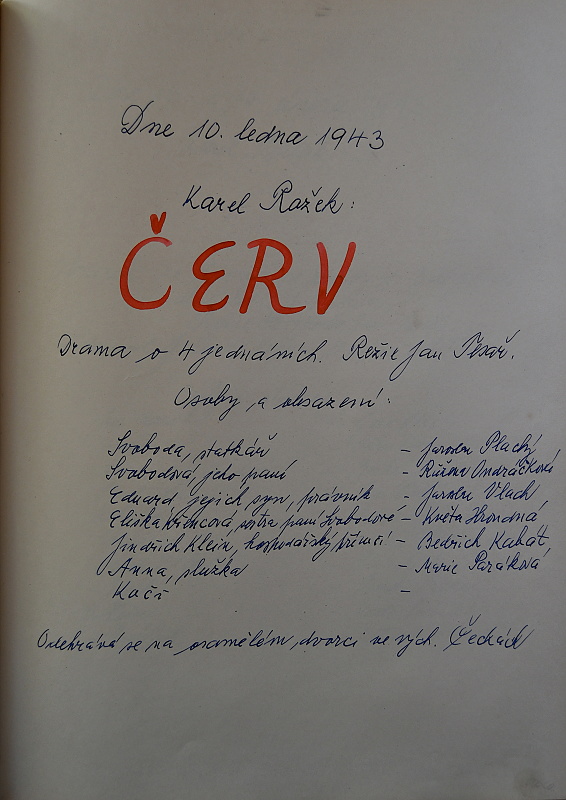 Dne 10. ledna 1943
Karel Rožek:
ČERV
Drama o 4 jednáních. Režie Jan Tesař.
Osoby a obsazení:
Svoboda, statkář – Jaroslav Plachý
Svobodová, jeho paní – Růžena Ondráčková
Eduard, jejich syn, právník – Jaroslav Vlach
Eliška Křencová, sestra paní Svobodové – Květa Hrondná
Jindřich Klein, hospodářský příručí – Bedřich Kabát
Anna, služka – Marie Paráková
Kočí –
Odehrává se na osamělém dvorci ve vých. Čechách